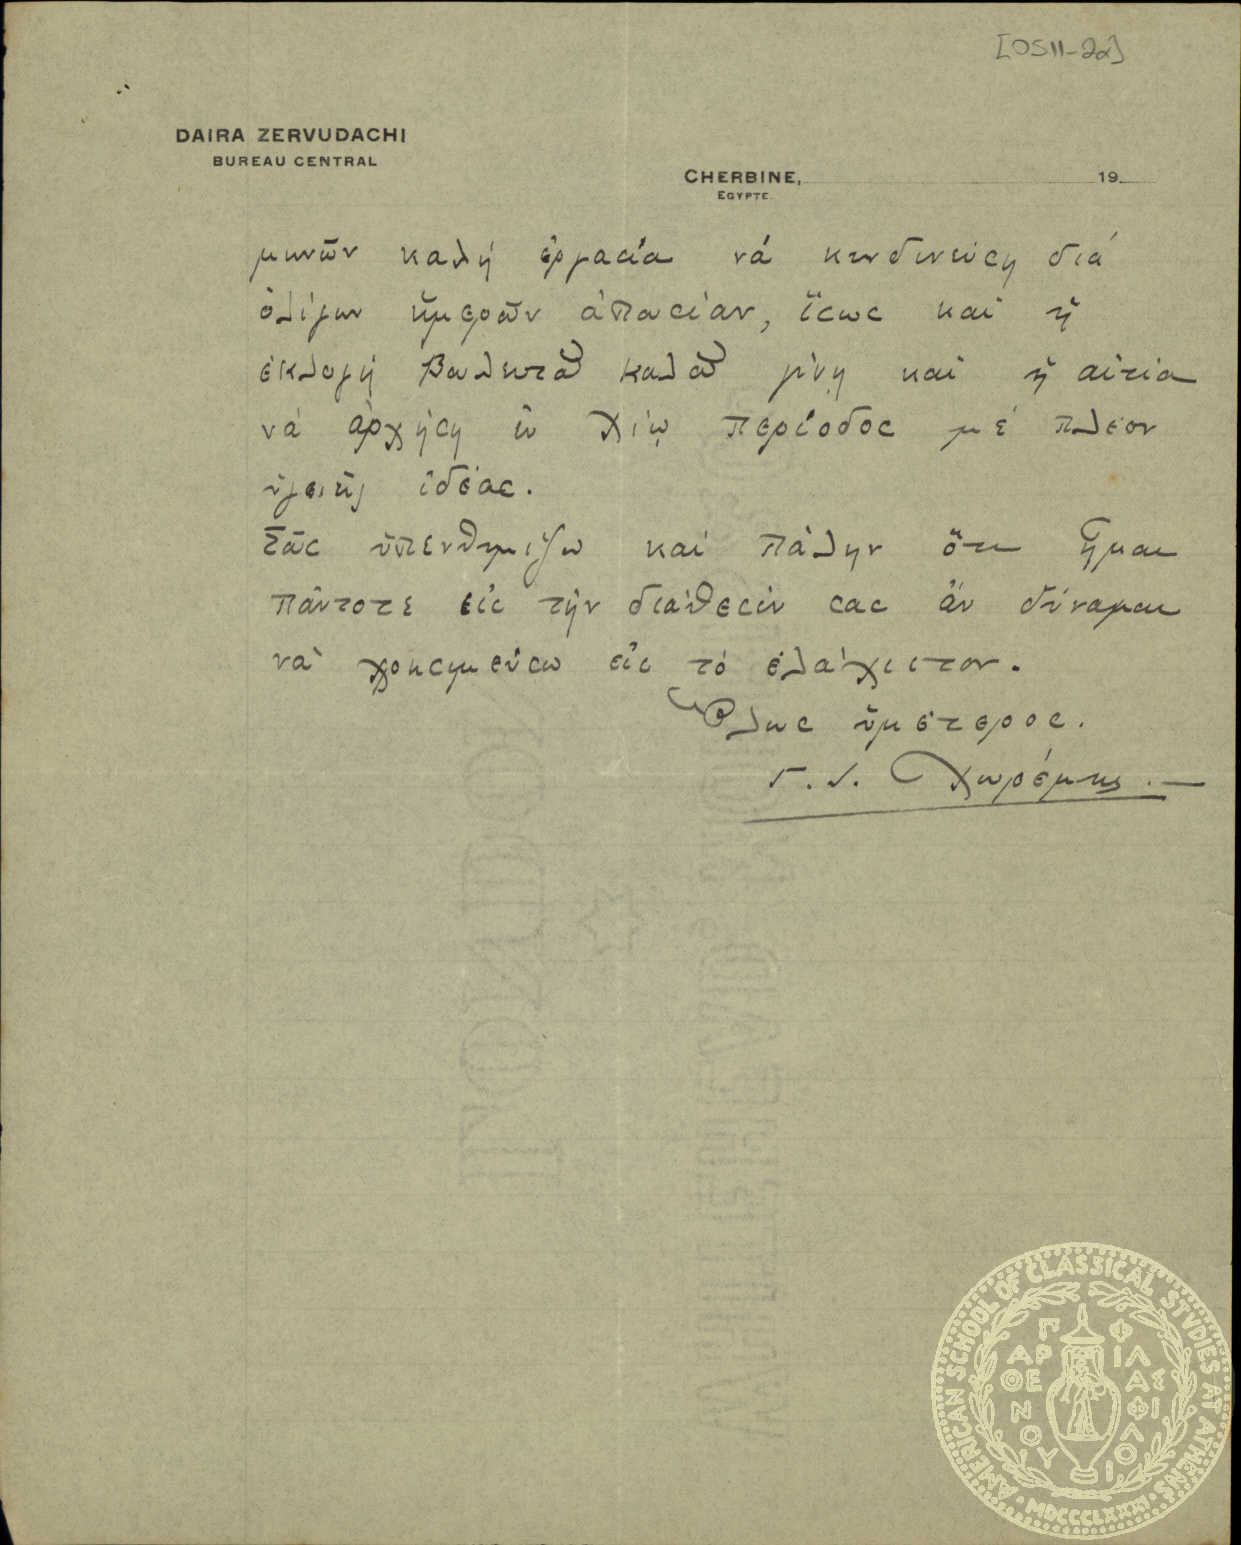 [OS11-2α]
DAIRA ZERVUDACHI
BUREAU CENTRAL
CHERBINE, 19
EGYPTE
μηνῶν καλή ἐργασία νά κινδινεύσῃ διά
ὀλίγων ἡμερῶν ἀπουσίαν, ἴσως καί ἡ
ἐκλογή Βουλευτοῦ καλοῦ γίνῃ καί ἡ αἰτία
νά ἀρχήσῃ ἐν Χίῳ περίοδος μέ πλέον
ὑγειεῖς ἰδέας.
Σᾶς ὑπενθυμίζω καί πάλην ὅτι ἦμαι
πάντοτε εἰς τήν διάθεσίν σας ἄν δύναμαι
νά χρησιμεύσω εἰς τό ἐλάχιστον.
Ὅλως ὑμέτερος.
Γ. Ι. Χωρέμης
AMERICAN SCHOOL OF CLASSICAL STUDIES AT ATHENS
MDCCCLXXXI
ΠΑΡΘΕΝΟΥ ΦΙΛΑΣ ΦΙΛΟΙ